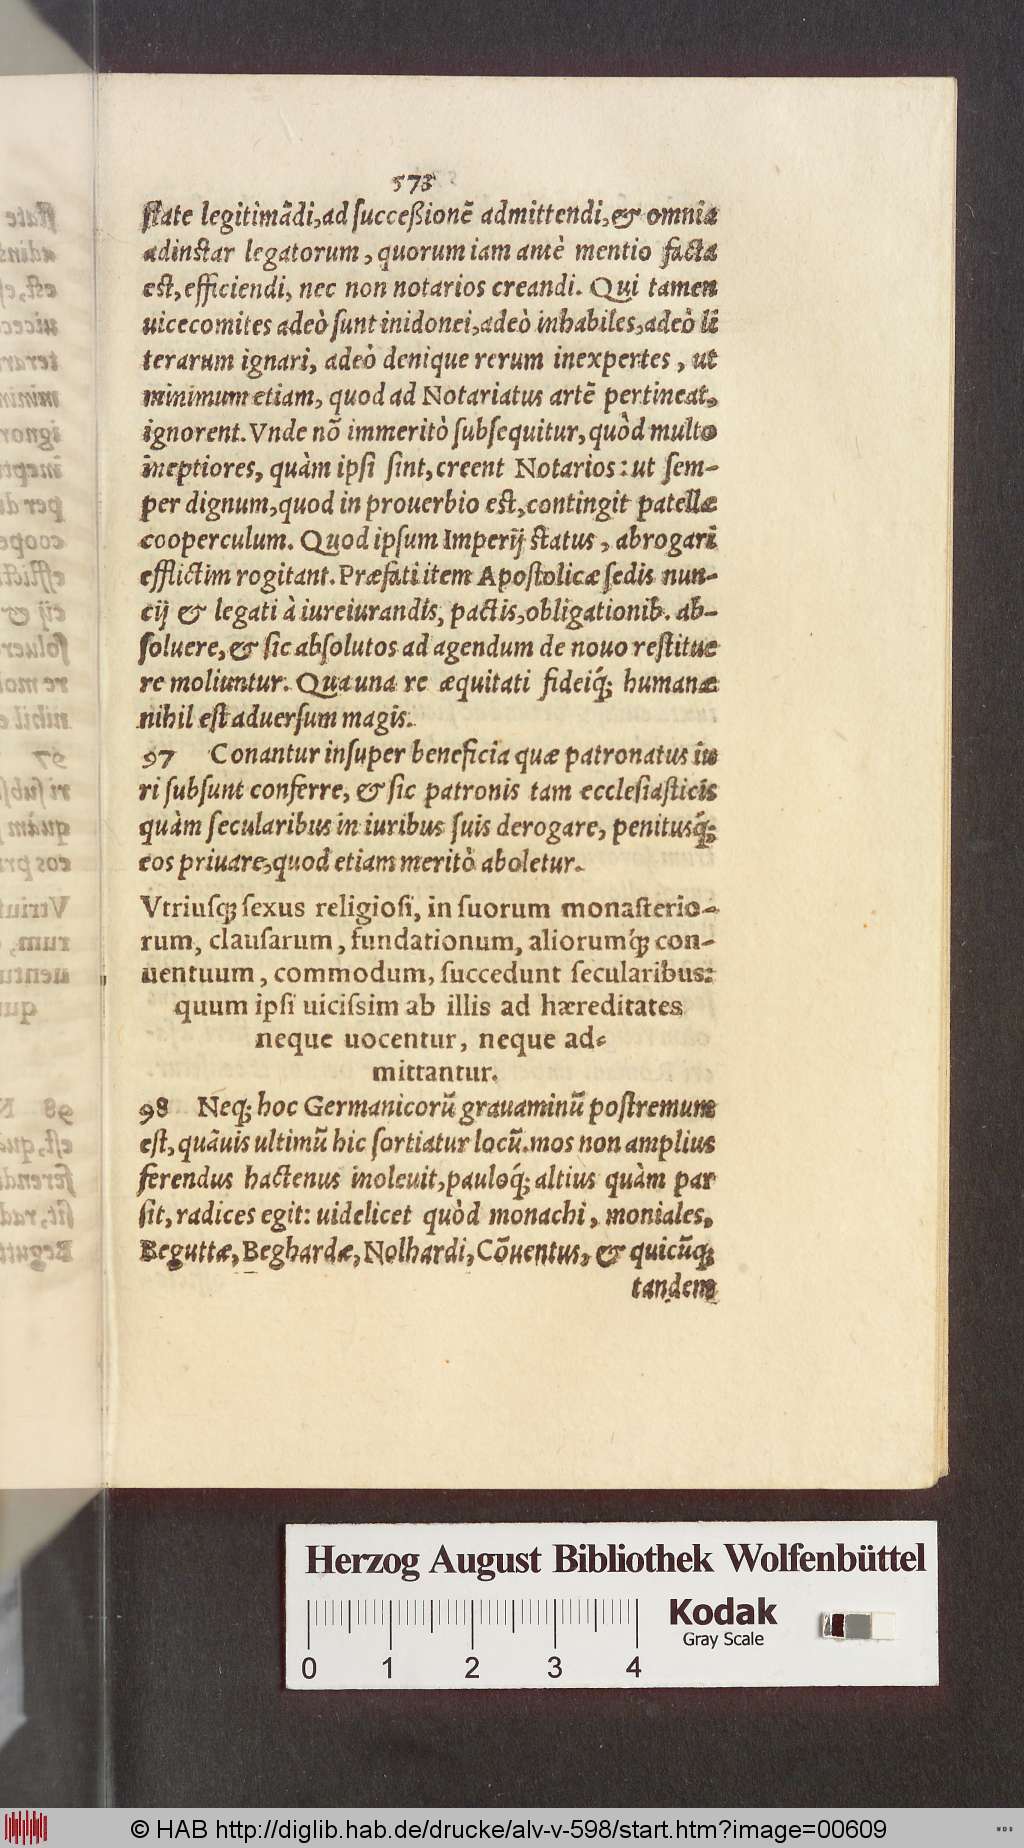 573
ſtate legitimādi, ad ſucceßionē admittendi, & omnia
adinſtar legatorum, quorum iam antè mentio facta
eſt, efficiendi, nec non notarios creandi. Qui tamen
uicecomites adeò ſunt inidonei, adeò inhabiles, adeò li
terarum ignari, adeò denique rerum inexpertes, ut
minimum etiam, quod ad Notariatus artē pertineat,
ignorent. Vnde nō immeritò ſubſequitur, quòd multo
ineptiores, quàm ipſi ſint, creent Notarios: ut ſem-
per dignum, quod in prouerbio eſt, contingit patellæ
cooperculum. Quod ipſum Imperij ſtatus, abrogari
efflictim rogitant. Præfati item Apoſtolicæ ſedis nun-
cij & legati à iureiurandis, pactis, obligationib. ab-
ſoluere, & ſic abſolutos ad agendum de nouo reſtitue
re moliuntur. Qua una re æquitati fideiq́; humanæ
nihil eſt aduerſum magis.
97 Conantur inſuper beneficia quæ patronatus iu
ri ſubſunt conferre, & ſic patronis tam eccleſiaſticis
quàm ſecularibus in iuribus ſuis derogare, penitusq́;
eos priuare, quod etiam meritò aboletur.
Vtriuſq; ſexus religioſi, in ſuorum monaſterio-
rum, clauſarum, fundationum, aliorumq́; con-
uentuum, commodum, ſuccedunt ſecularibus:
quum ipſi uiciſsim ab illis ad hæreditates
neque uocentur, neque ad-
mittantur.
98 Neq; hoc Germanicorū grauaminū poſtremum
eſt, quāuis ultimū hic ſortiatur locū. mos non amplius
ferendus hactenus inoleuit, pauloq́; altius quàm par
ſit, radices egit: uidelicet quòd monachi, moniales,
Beguttæ, Beghardæ, Nolhardi, Cōuentus, & quicūq;
tandem
Herzog August Bibliothek Wolfenbüttel
Kodak
Gray Scale
0 1 2 3 4
© HAB http://diglib.hab.de/drucke/alv-v-598/start.htm?image=00609